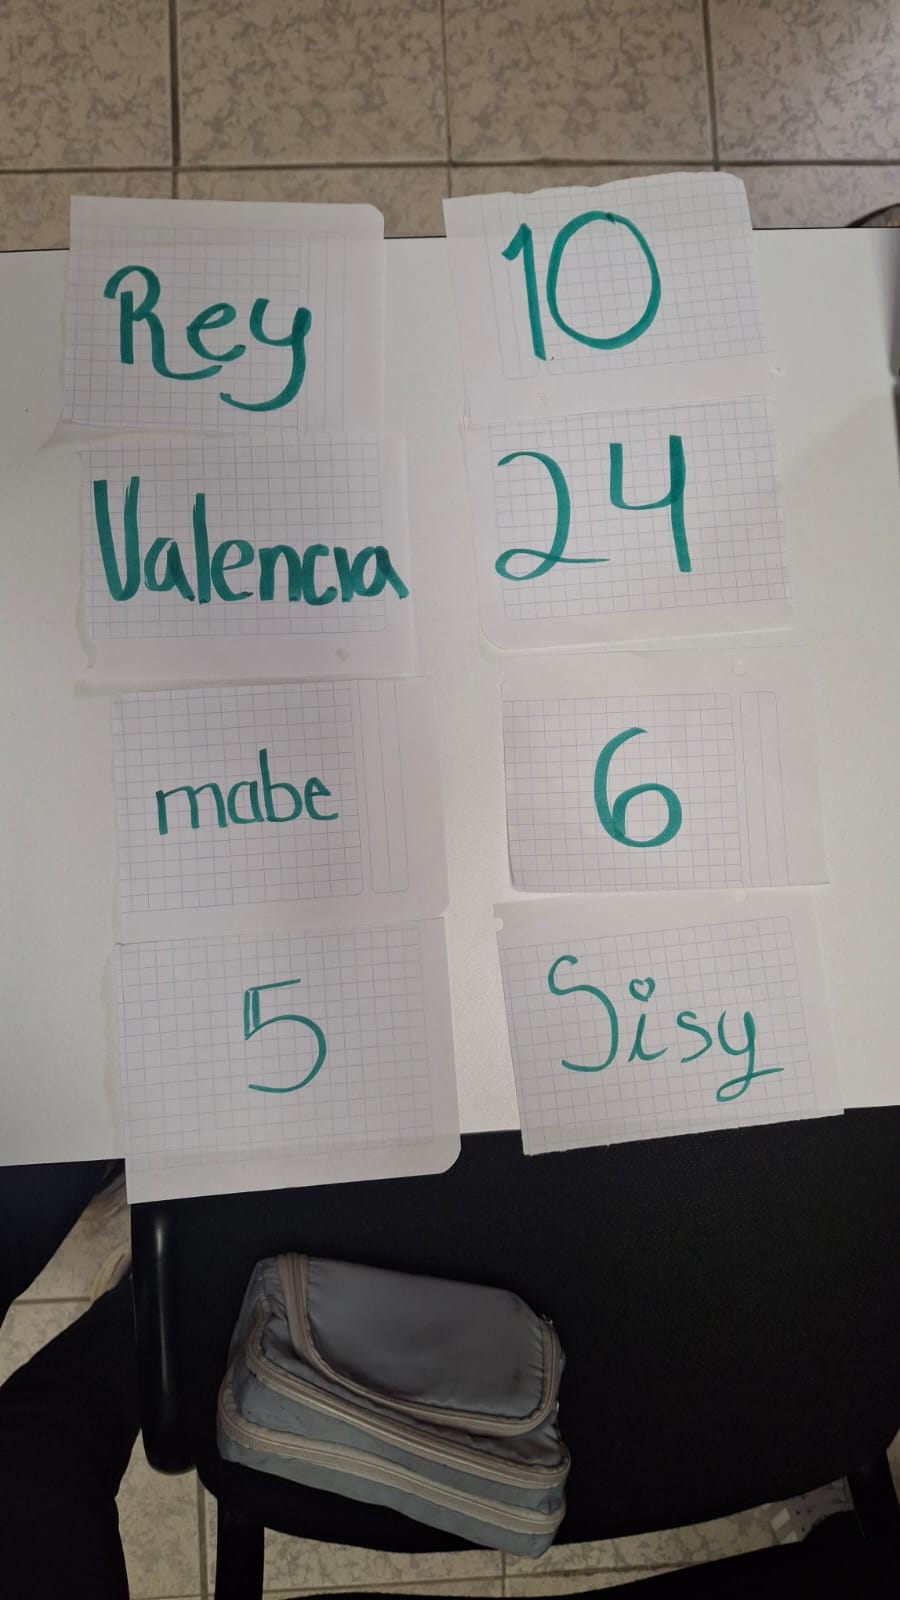 Rey
10
Valencia
24
mabe
6
5
Sisy